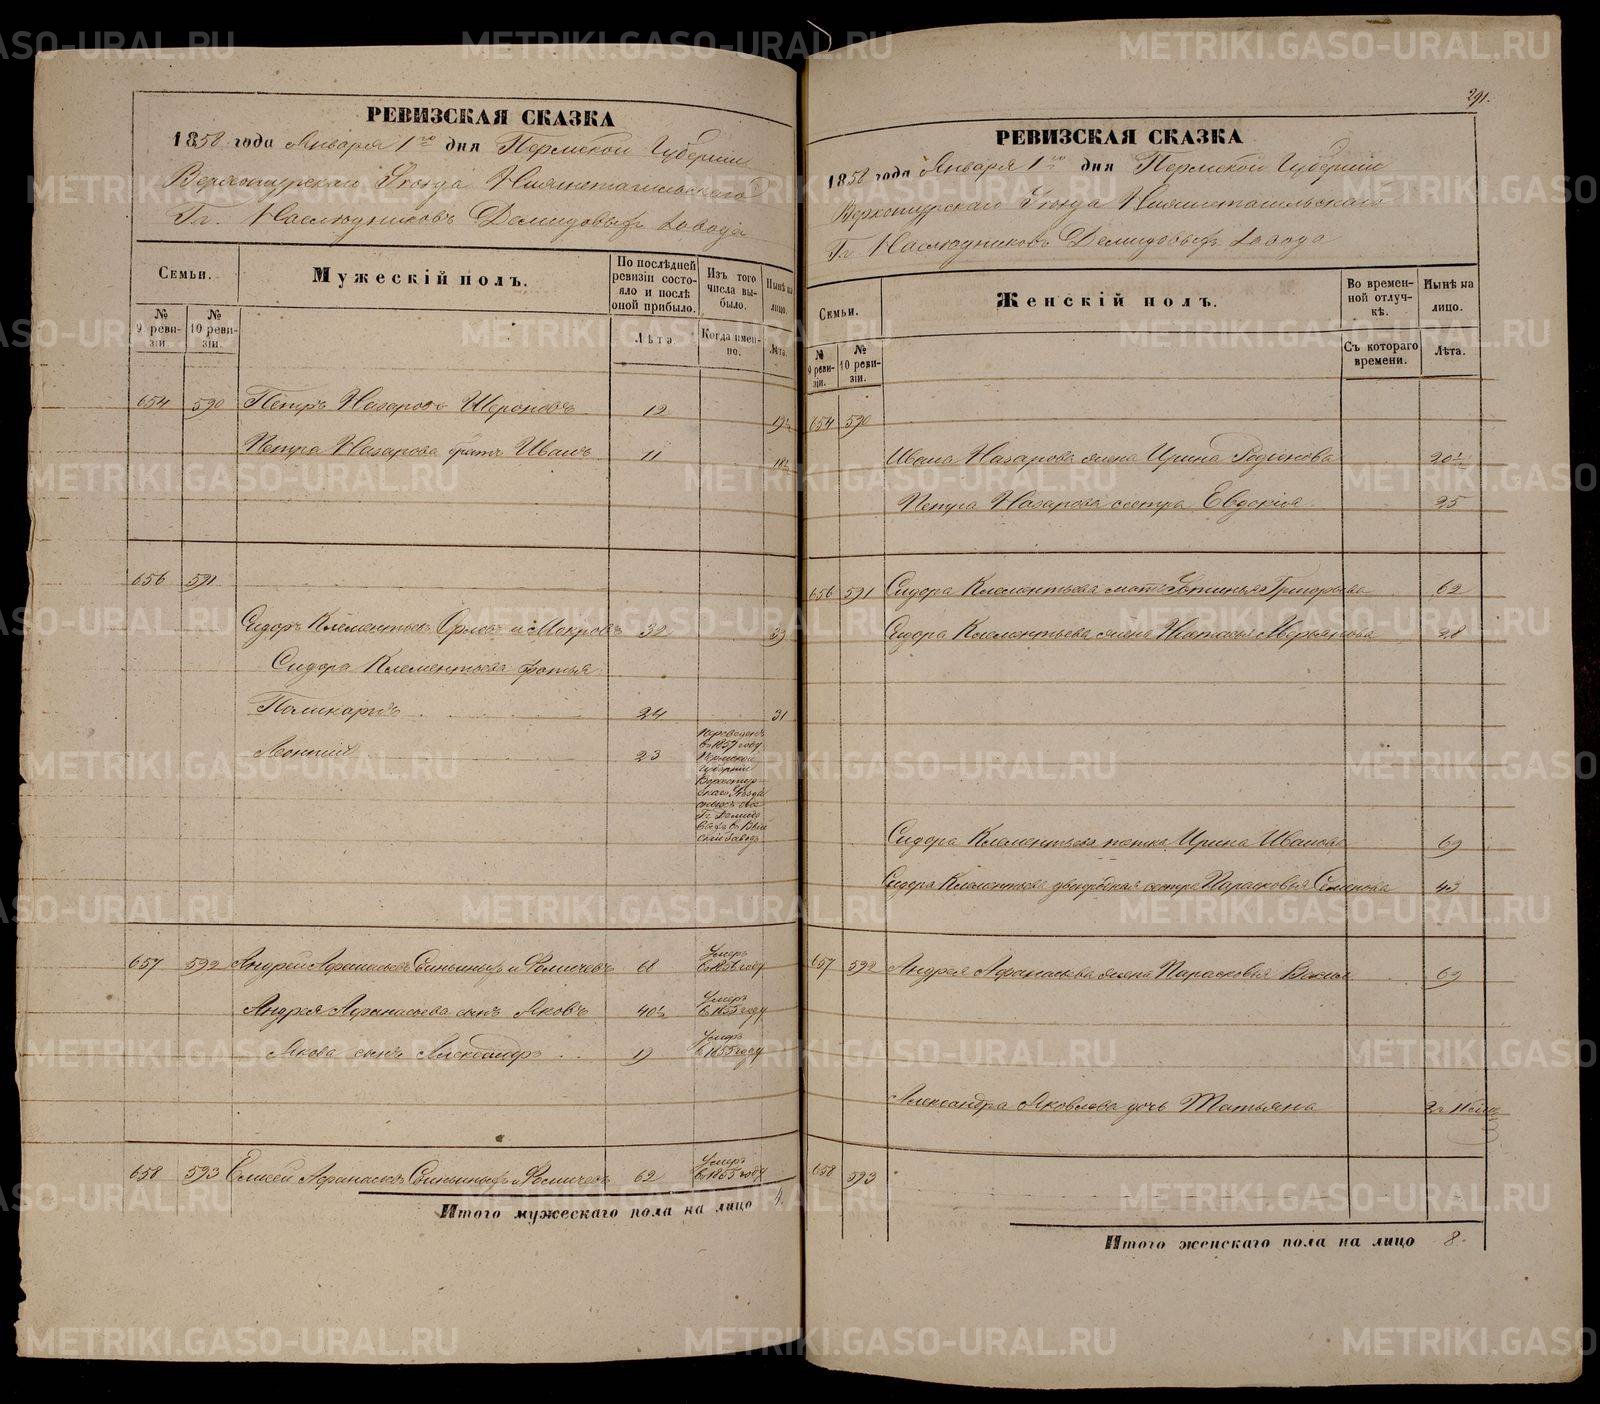 РЕВИЗСКАЯ СКАЗКА
1858 года Января 1го дня Пермской Губернии
Верхотурскаго Уезда Нижнетагильскаго
Гг. Наследниковъ Демидовыхъ Завода
Семьи.
Мужескій полъ.
По послѣдней ревизіи состояло и послѣ оной прибыло.
Изъ того числа выбыло.
Нынѣ на лицо.
№ 9 ревизіи
№ 10 ревизіи.
Лѣта
Когда именно.
Лѣта.
654 590 Петръ Назаровъ 12 19½
Петра Назарова братъ Иванъ 11 18½
656 591
Сидоръ Клементьевъ Орловъ и Мокровъ 32 39
Сидора Клементьева братья
Поликарпъ 24 31
Леонтій 23
Переведенъ
въ 1857 году
Пермской
Губерніи
Верхотур-
скаго Уезда
Гг. Демидо
выхъ в Выи
скій Заводъ
657 592 Андрей Афанасьевъ 68 Умеръ въ 1856 году
Андрея Афанасьева сынъ Яковъ 40½ Умеръ въ 1855 году
Якова сынъ Александръ 19 Умеръ въ 1855 году
658 593 Елисей Афанасьевъ 62 Умеръ въ 1855 году
Итого мужескаго пола на лицо 4.
291.
РЕВИЗСКАЯ СКАЗКА
1858 года Января 1го дня Пермской Губерніи
Верхотурскаго Уезда Нижнетагильскаго
Гг. Наследниковъ Демидовыхъ Завода
Семьи.
Женскій полъ.
Во временной отлучкѣ.
Нынѣ на лицо.
№ 9 ревизіи.
№ 10 ревизіи.
Съ котораго времени.
Лѣта.
654 590
Ивана Назарова жена Ирина Родіонова 20½
Петра Назарова сестра Евдокія 25
656 591 Сидора Клементьева мать Фотинья Григорьева 62
Сидора Клементьева жена Наталья Аверьянова 38
Сидора Клементьева тетка Ирина Иванова 69
Сидора Клементьева двоюродная сестра Парасковья Семенова 43
657 592 Андрея Афанасьева жена Парасковья 69
Александра Яковлева дочь Татьяна
658 593
Итого женскаго пола на лицо 8.
METRIKI.GASO-URAL.RU